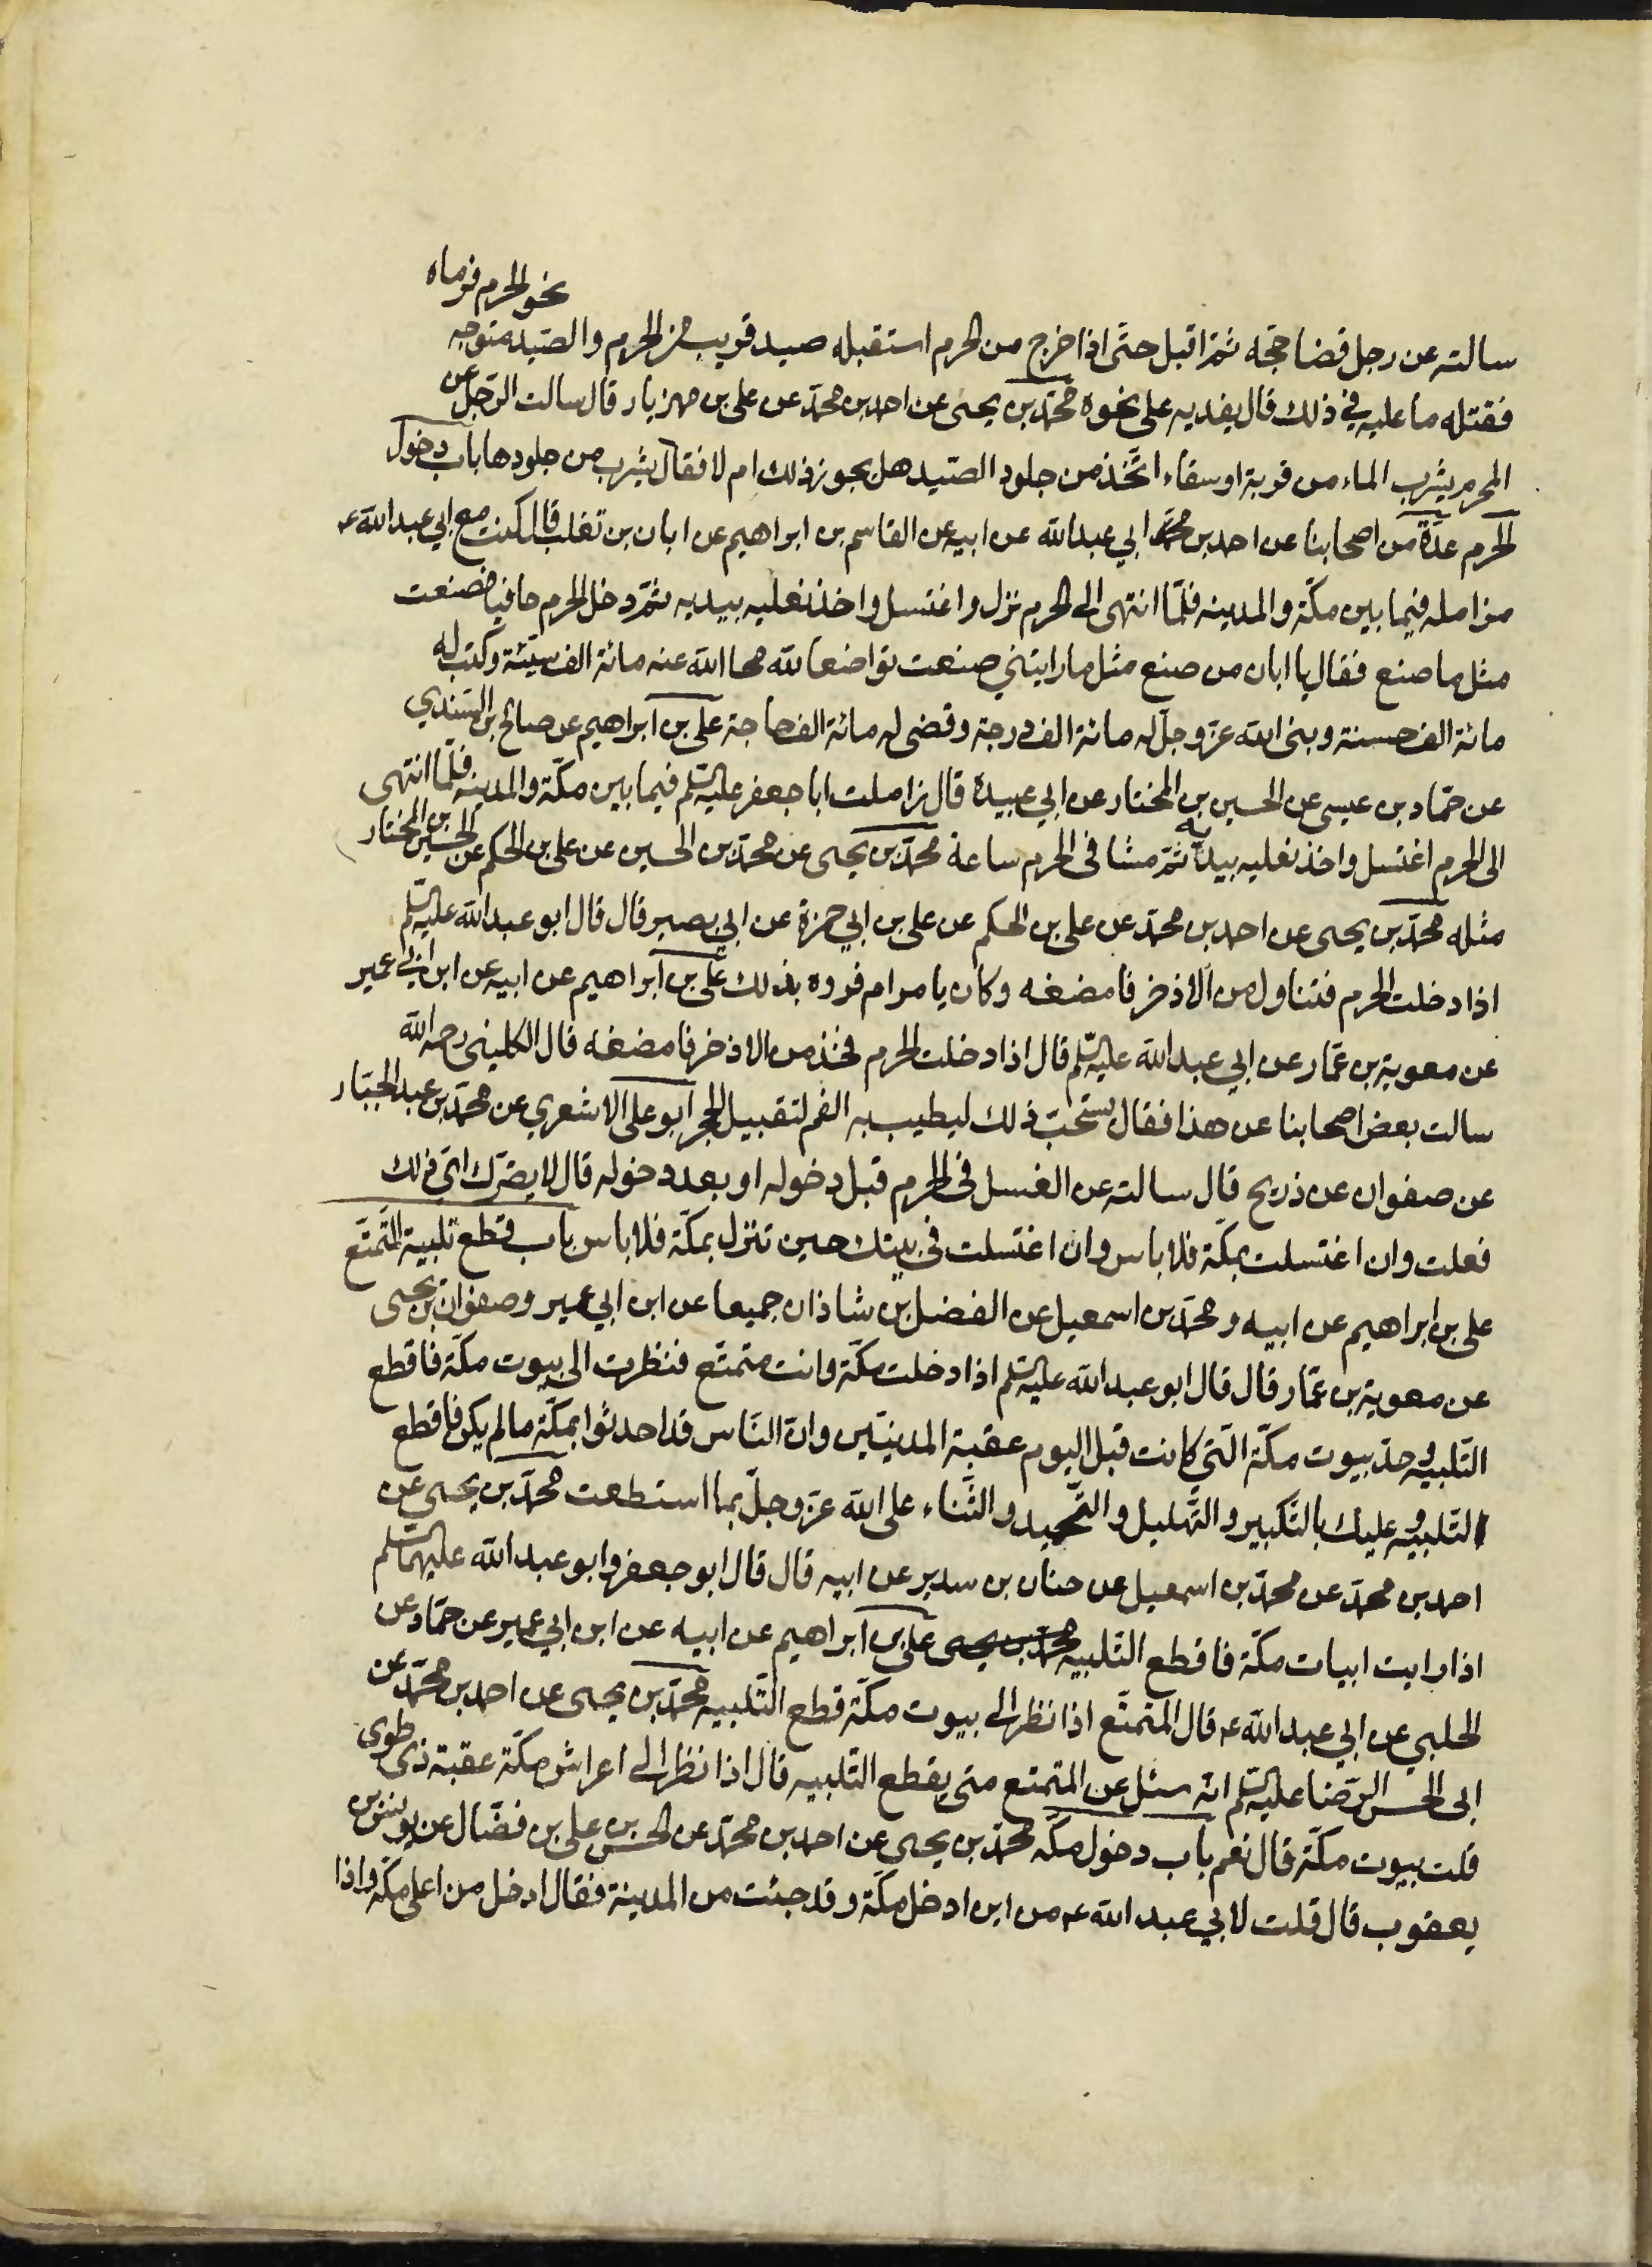 سالته عن رجل قضا حجه ثمّ اقبل حتّى اذا خرج من الحرم استقبله صيد قريب من الحرم والصّيد متوجه
نحو الحرم فرماه
فقتله ما عليه في ذلك قال يفديه على نحوه محمّد بن يحيى عن احمد بن محمّد عن على بن مهزيار قال سالت الرّجل عن
المحرم يشرب الماء من قربة او سقاء اتّخذ من جلود الصّيد هل يجوز ذلك ام لا فقال يشرب من جلودها باب دخول
الحرم عدّة من اصحابنا عن احمد بن محمّد ابي عبدالله عن ابيه عن القاسم بن ابراهيم عن ابان بن تغلب قال كنت مع ابي عبدالله ع
مزامله فيما بين مكّة والمدينه فلمّا انتهى الى الحرم نزل واغتسل واخذ نعليه بيديه ثمّ دخل الحرم حافيا فصنعت
مثل ما صنع فقال يا ابان من صنع مثل ما رايتني صنعت تواضعا لله محا الله عنه مائة الف سيّئة وكتب له
مائة الف حسنة وبنى الله عزّ وجلّ له مائة الف درجة وقضى له مائة الف حاجة على بن ابراهيم عن صالح بن السّندي
عن حمّاد بن عيسى عن الحسين بن المختار عن ابي عبيدة قال زاملت ابا جعفر عليه السّلم فيما بين مكّة والمدينه فلمّا انتهى
الى الحرم اغتسل واخذ نعليه بيديه ثمّ مشا في الحرم ساعة محمّد بن يحيى عن محمّد بن الحسين عن على بن الحكم عن الحسين بن المختار
مثله محمّد بن يحيى عن احمد بن محمّد عن على بن الحكم عن على بن ابي حمزة عن ابي بصير قال قال ابو عبدالله عليه السّلم
اذا دخلت الحرم فتناول من الاذخر فامضغه وكان يامر ام فروه بذلك على بن ابراهيم عن ابيه عن ابن ابي عمير
عن معوية بن عمّار عن ابي عبدالله عليه السّلم قال اذا دخلت الحرم فخذ من الاذخر فامضغه قال الكليني رحمه الله
سالت بعض اصحابنا عن هذا فقال يستحّب ذلك ليطيب به الفم لتقبيل الحجر ابو على الاشعري عن محمّد بن عبد الجبّار
عن صفوان عن ذريح قال سالته عن الغسل في الحرم قبل دخوله او بعد دخوله قال لا يضرّك اىّ ذلك
فعلت وان اغتسلت بمكّة فلا باس وان اغتسلت في بيتك حين تنزل بمكّة فلا باس باب قطع تلبية المتّمتّع
على بن ابراهيم عن ابيه ومحمّد بن اسمعيل عن الفضل بن شاذان جميعا عن ابن ابي عمير وصفوان بن يحيى
عن معوية بن عمّار قال قال ابو عبدالله عليه السّلم اذا دخلت مكّة وانت متمتّع فنظرت الى بيوت مكّة فاقطع
التّلبيه وحدّ بيوت مكّة الّتي كانت قبل اليوم عقبة المدنيّين وانّ النّاس قد احدثوا بمكّة ما لم يكن فاقطع
التّلبيه وعليك بالتّكبير والتّهليل والتّحميد والثّناء على الله عزّ وجلّ بما استطعت محمّد بن يحيى عن
احمد بن محمّد عن محمّد بن اسمعيل عن حنان بن سدير عن ابيه قال قال ابو جعفر وابو عبدالله عليهما السّلم
اذا رايت ابيات مكّة فاقطع التّلبيه محمّد بن يحيى على بن ابراهيم عن ابيه عن ابن ابي عمير عن حمّاد عن
الحلبي عن ابي عبدالله ع قال المتمتّع اذا نظر الى بيوت مكّة قطع التّلبيه محمّد بن يحيى عن احمد بن محمّد عن
ابى الحسن الرّضا عليه السّلم انّه سئل عن المتمتع متى يقطع التّلبيه قال اذا نظر الى اعراش مكّة عقبة ذى طوى
قلت بيوت مكّة قال نعم باب دخول مكّه محمّد بن يحيى عن احمد بن محمّد عن الحسن بن على بن فضّال عن يونس بن
يعقوب قال قلت لابي عبدالله ع من اين ادخل مكّة وقد جئت من المدينة فقال ادخل من اعلى مكّة واذا